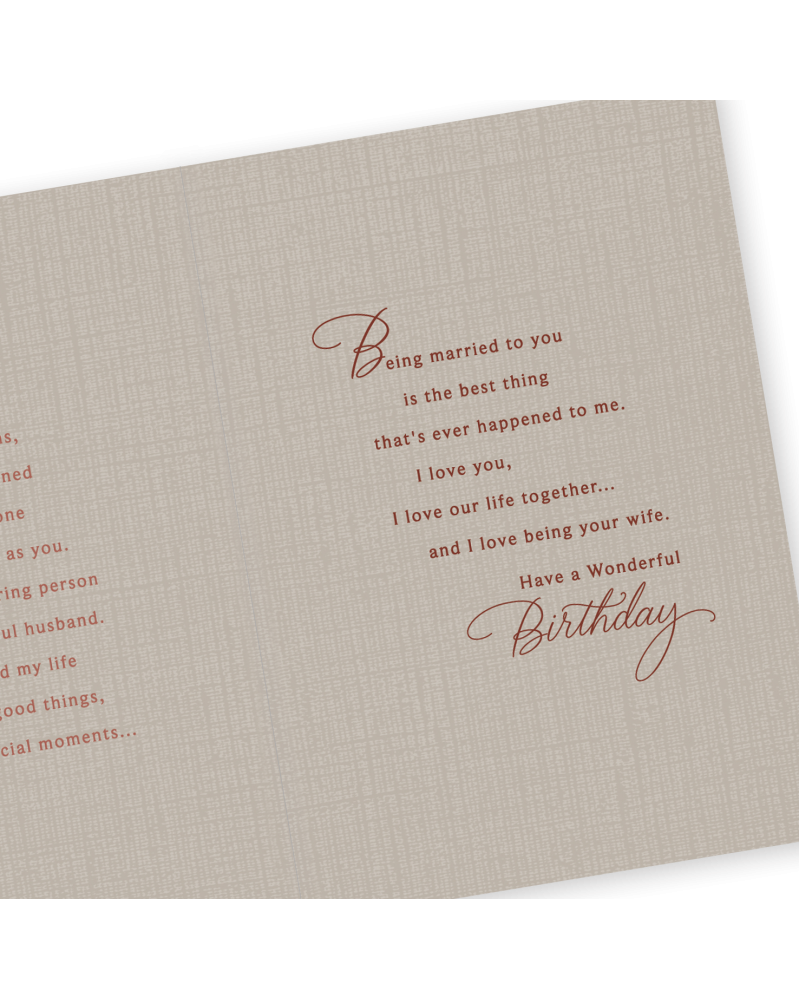 as you.
person
husband.
my life
good things,
moments...
Being married to you
is the best thing
that's ever happened to me.
I love you,
I love our life together...
and I love being your wife.
Have a Wonderful
Birthday